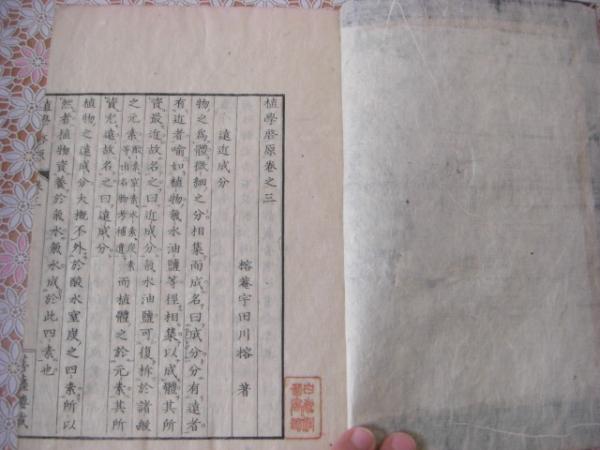 植學啓原卷之三
榕菴宇田川榕 著
遠近成分
物之爲體微細之分相集而成名曰成分分有遠者
有近者喻如植物氣水油鹽等徑相集以成體其所
資最近故名之曰近成分氣水油鹽可復拆於諸般
之元素酸素窒素水素炭素等由名物考補遺而植體之於元素其所
資尤遠故名之曰遠成分
植物之遠成分大槪不外於酸水窒炭之四素所以
然者植物資養於氣水氣水成於此四素也